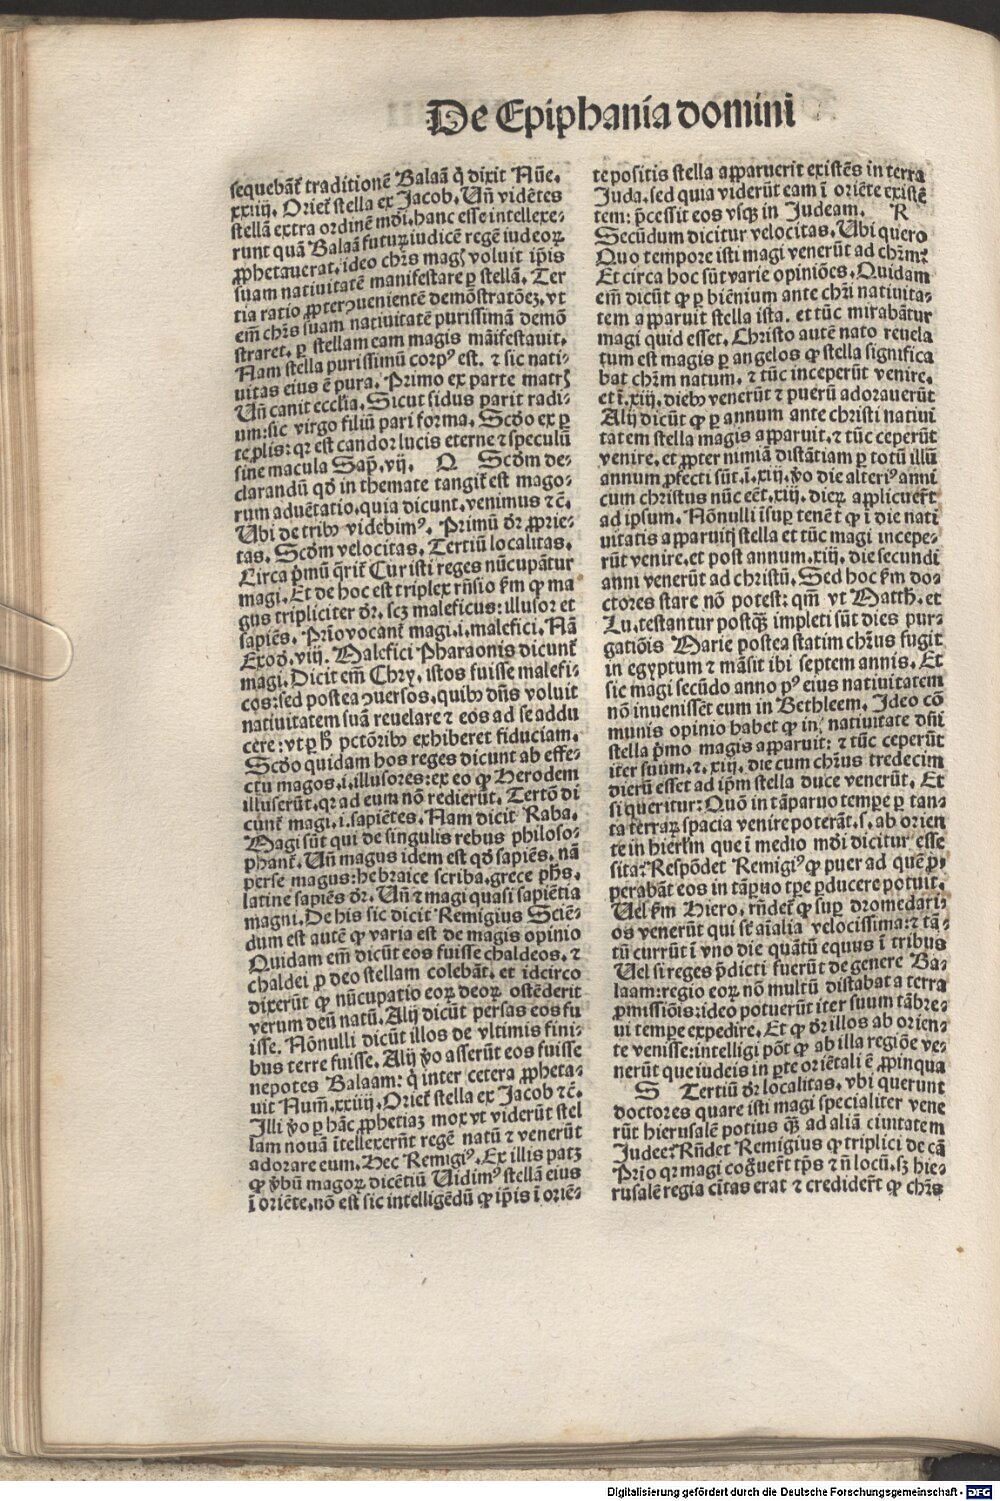 De Epiphania domini
sequebãt᷑ traditionẽ Balaã q̃ dixit Nũe.
xxiiij. Oriet᷑ stella ex Jacob. Uñ vidẽtes
stellã extra ordinẽ mũdi. hanc esse intellexe-
runt quã Balaã futuꝝ iudicẽ regẽ iudeoꝝ
ꝓphetauerat. ideo chr̃s magꝭ voluit ip̃is
suam natiuitatẽ manifestare ꝑ stellã. Ter
tia ratio ꝓpter ꝯuenientẽ demõstratõeꝫ. vt
em̃ chr̃s suam natiuitatẽ purissimã demõ
straret. ꝑ stellam eam magis mãifestauit.
Nam stella purissimũ corpꝰ est. ⁊ sic nati-
uitas eius ẽ pura. Primo ex parte matrꝭ
Uñ canit ecclĩa. Sicut sidus parit radi-
um: sic virgo filiũ pari forma. Scd̃o ex ꝑ
te ꝓlis: qꝛ est candor lucis eterne ⁊ speculũ
sine macula Sap̃. vij. Q Scd̃m de-
clarandũ qd̃ in themate tangit᷑ est mago-
rum aduẽtatio. quia dicunt. venimus ⁊c̃.
Ubi de tribꝰ videbimꝰ. Primũ dr̃ ꝓprie-
tas. Scd̃m velocitas. Tertiũ localitas.
Circa p̃mũ q̃rit᷑ Cur isti reges nũcupãtur
magi. Et de hoc est triplex rñsio ẜm ꝙ ma
gus tripliciter dr̃. scꝫ maleficus: illusor et
sapiẽs. Prĩo vocant᷑ magi .i. malefici. Nã
Exod̃. viij. Malefici Pharaonis dicunt᷑
magi. Dicit em̃ Chry. istos fuisse malefi-
cos: sed postea ꝯuersos. quibꝰ dñs voluit
natiuitatem suã reuelare ⁊ eos ad se addu
cere: vt ꝑ h̃ pctõribꝰ exhiberet fiduciam.
Scd̃o quidam hos reges dicunt ab effe-
ctu magos .i. illusores: ex eo ꝙ Herodem
illuserũt. qꝛ ad eum nõ redierũt. Tertõ di
cunt᷑ magi .i. sapiẽtes. Nam dicit Raba.
Magi sũt qui de singulis rebus philoso-
phant᷑. Uñ magus idem est qd̃ sapiẽs. nã
perse magus: hebraice scriba. grece ph̃s.
latine sapiẽs dr̃. Uñ ⁊ magi quasi sapiẽtia
magni. De his sic dicit Remigius Sciẽ-
dum est autẽ ꝙ varia est de magis opinio
Quidam em̃ dicũt eos fuisse chaldeos. ⁊
chaldei ꝓ deo stellam colebãt. et idcirco
dixerũt ꝙ nũcupatio eoꝝ deoꝝ ostẽderit
verum deũ natũ. Alij dicũt persas eos fu
isse. Nõnulli dicũt illos de vltimis fini-
bus terre fuisse. Alij ꝟo asserũt eos fuisse
nepotes Balaam: q̃ inter cetera ꝓpheta-
uit Num̃. xxiiij. Oriet᷑ stella ex Jacob ⁊c̃.
Illi ꝟo ꝑ hãc ꝓphetiaꝫ mox vt viderũt stel
lam nouã ĩtellexerũt regẽ natũ ⁊ venerũt
adorare eum. Hec Remigiꝰ. Ex illis patꝫ
ꝙ ꝟbũ magoꝝ dicẽtiũ Uidimꝰ stellã eius
ĩ oriẽte. nõ est sic intelligẽdũ ꝙ ip̃is ĩ oriẽ-
te positis stella apparuerit existẽs in terra
Juda. sed quia viderũt eam ĩ oriẽte existẽ
tem: p̃cessit eos vsqꝫ in Judeam. R
Secũdum dicitur velocitas. Ubi quero
Quo tempore isti magi venerũt ad chr̃m?
Et circa hoc sũt varie opiniões. Quidam
em̃ dicũt ꝙ ꝑ biẽnium ante chr̃i natiuita-
tem apparuit stella ista. et tũc mirabãtur
magi quid esset. Christo autẽ nato reuela
tum est magis ꝑ angelos ꝙ stella significa
bat chr̃m natum. ⁊ tũc inceperũt venire.
et ĩ .xiij. diebꝰ venerũt ⁊ puerũ adorauerũt
Alij dicũt ꝙ ꝑ annum ante christi natiui
tatem stella magis apparuit. ⁊ tũc ceperũt
venire. et ꝓpter nimiã distãtiam ꝑ totũ illũ
annum ꝓfecti sũt. ĩ .xiij. ꝟo die alteriꝰ anni
cum christus nũc eẽt .xiij. dieꝝ applicuer̃t
ad ipsum. Nõnulli ĩsuꝑ tenẽt ꝙ ĩ die nati
uitatis apparuit stella et tũc magi incepe-
rũt venire. et post annum .xiij. die secundi
anni venerũt ad christũ. Sed hoc ẜm do-
ctores stare nõ potest: qm̃ vt Matth̃. et
Lu. testantur postqꝫ impleti sũt dies pur-
gatiõis Marie postea statim chr̃us fugit
in egyptum ⁊ mãsit ibi septem annis. Et
sic magi secũdo anno pꝰ eius natiuitatem
nõ inuenissẽt eum in Bethleem. Ideo cõ
munis opinio habet ꝙ in natiuitate dñi
stella p̃mo magis apparuit: ⁊ tũc ceperũt
iter suum. ⁊ .xiij. die cum chr̃us tredecim
dierũ esset ad ip̃m stella duce venerũt. Et
si queritur: Quõ in tã paruo tempe ꝑ tan-
ta terraꝝ spacia venire poterãt. s. ab orien
te in hierl̃m que ĩ medio mũdi dicitur esse
sita? Respõdet Remigiꝰ ꝙ puer ad quẽ ꝓ-
perabãt eos in tã ꝑuo tp̃e ꝑducere potuit.
Uel ẜm Hiero. rñdet᷑ ꝙ suꝑ dromedari-
os venerũt qui sũt aĩalia velocissima: ⁊ tã-
tũ currũt ĩ vno die quãtũ equus ĩ tribus
Uel si reges p̃dicti fuerũt de genere Ba-
laam: regio eoꝝ nõ multũ distabat a terra
ꝓmissiõis: ideo potuerũt iter suum tã bre-
ui tempe expedire. Et ꝙ dr̃ illos ab orien-
te venisse: intelligi põt ꝙ ab illa regiõe ve-
nerũt que iudeis in ꝑte oriẽtali ẽ ꝓpinqua
S Tertiũ dr̃ localitas. vbi querunt
doctores quare isti magi specialiter vene
rũt hierusalẽ potius qꝫ ad aliã ciuitatem
Judee? Rñdet Remigius ꝙ triplici de cã
Prĩo qꝛ magi cog̃uer̃t tp̃s ⁊ ñ locũ. sꝫ hie-
rusalẽ regia ciũtas erat ⁊ credider̃t ꝙ chr̃s
Digitalisierung gefördert durch die Deutsche Forschungsgemeinschaft - DFG